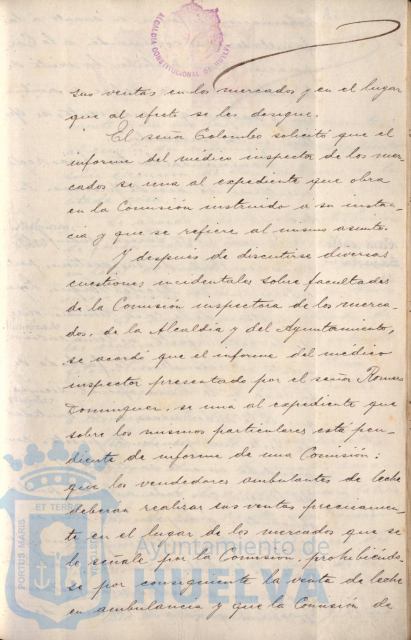 ALCALDIA CONSTITUCIONAL DE HUELVA
sus ventas en los mercados y en el lugar
que al efecto se les designe.
El señor Colombo solicitó que el
informe del médico inspector de los mer-
cados se una al expediente que obra
en la Comisión instruido a su instan-
cia y que se refiere al mismo asunto.
Y después de discutirse diversas
cuestiones incidentales sobre facultades
de la Comisión inspectora de los merca-
dos, de la Alcaldía y del Ayuntamiento,
se acordó que el informe del médico
inspector presentado por el señor Romero
Dominguez, se una al expediente que
sobre los mismos particulares está pen-
diente de informe de una Comisión:
que los vendedores ambulantes de leche
deberan realizar sus ventas precisamen-
te en el lugar de los mercados que se
le señale por la Comisión, prohibiendo-
se por consiguiente la venta de leche
en ambulancia y que la Comisión de
PORTUS MARIS ET TERRAE CUSTODIA
Ayuntamiento de
HUELVA